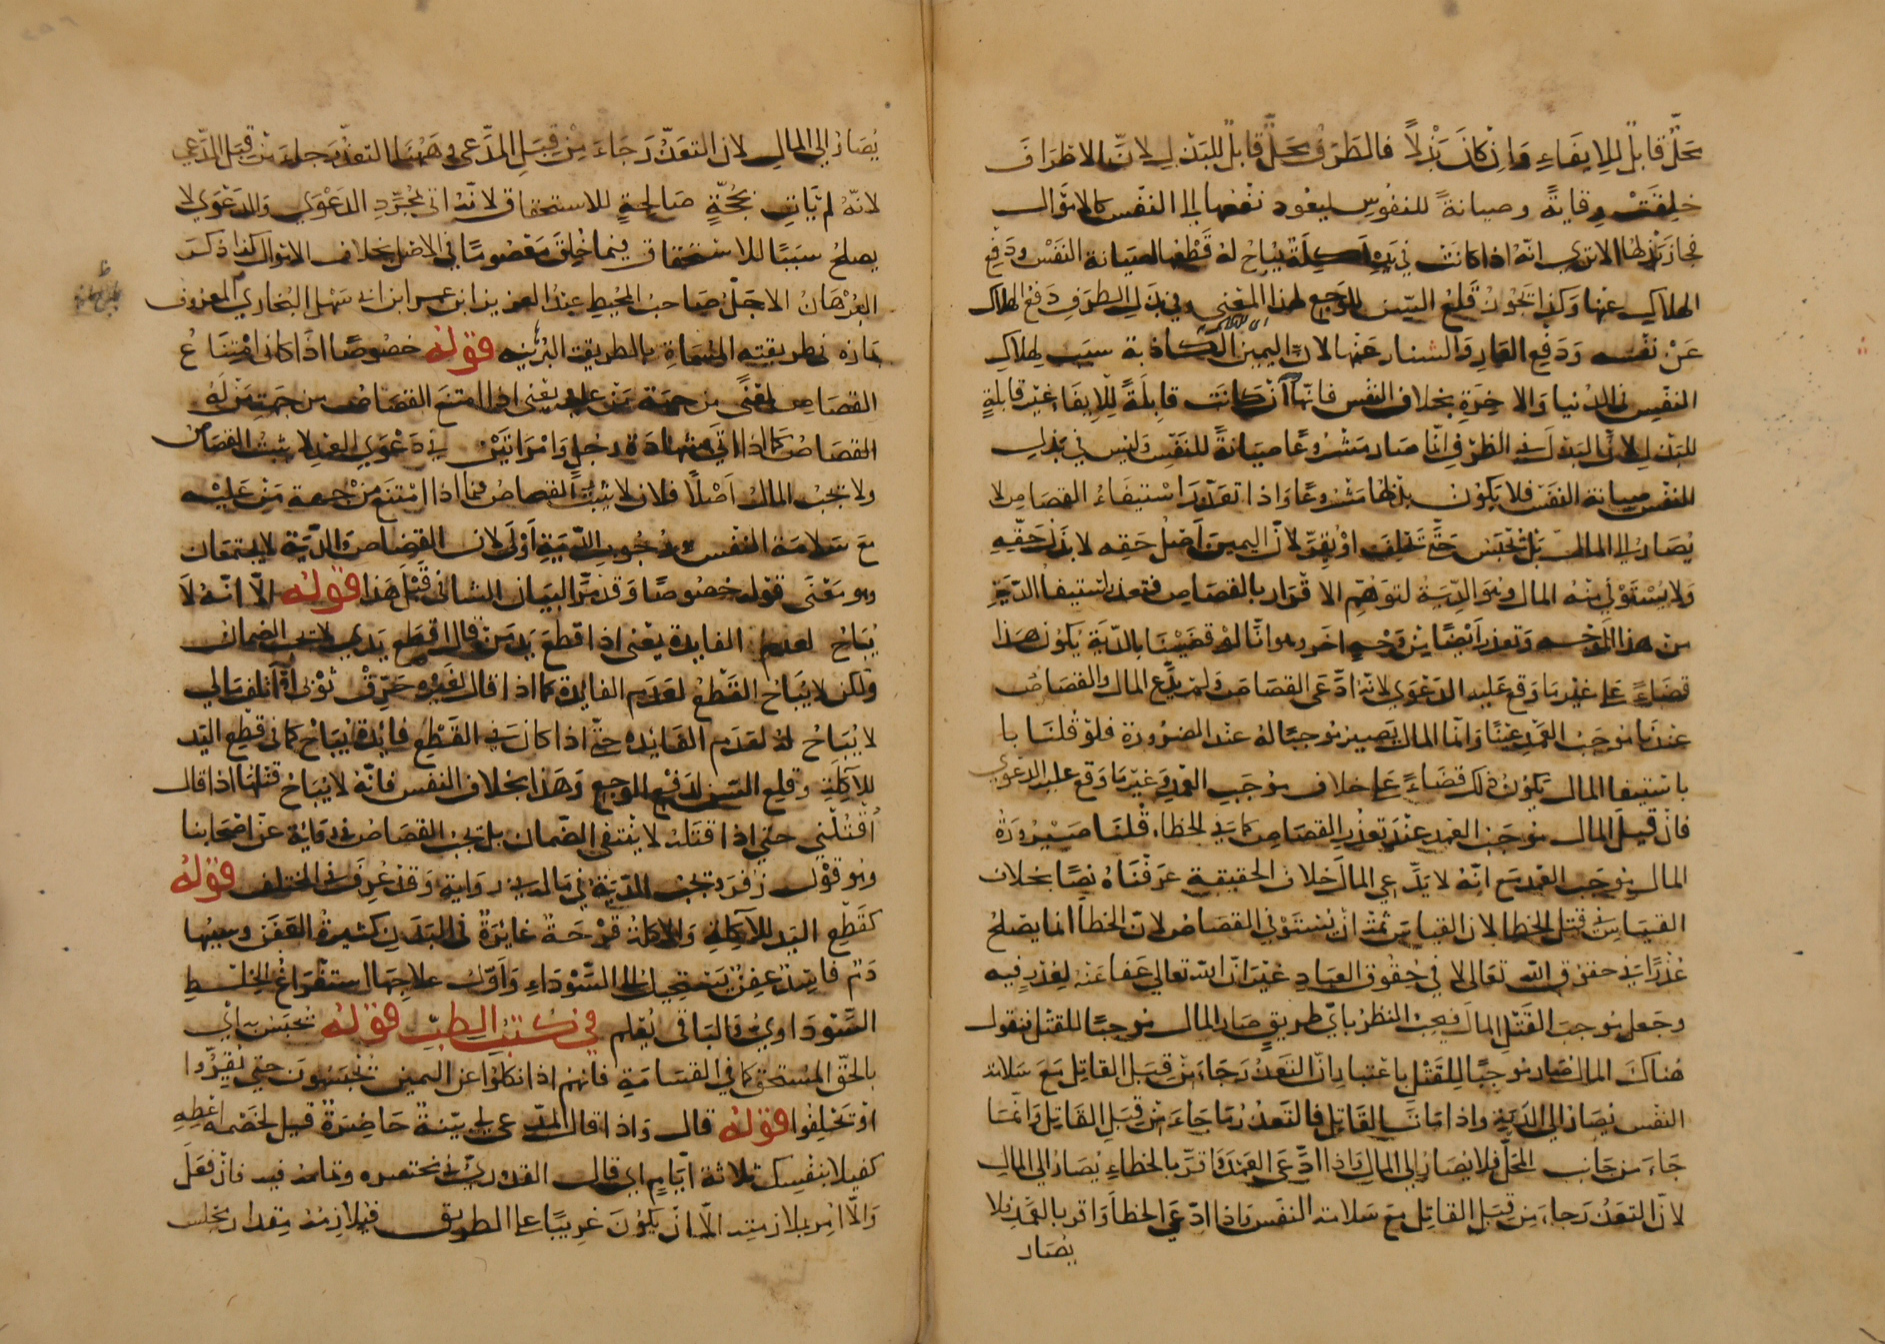 محلّ قابل للايفاء وان كان بذلا فالطرف محلّ قابل للبذل لانّ الاطراف
خلقت وقاية وصيانة للنفوس ليعود نفعها الى النفس كالاموال
فجاز بذلها الا ترى انه اذا كانت في يده اكلة يباح له قطعها لصيانة النفس ودفع
الهلاك عنها وكذا يجوز قلع السن للوجع لهذا المعنى وفي بذل الطرف دفع الهلاك
عن نفسه ودفع العار والشنار عنها لان اليمين الكاذبة سبب لهلاك
النفس في الدنيا والاخرة بخلاف النفس فانها وان كانت قابلة للايفاء غير قابلة
للبذل لان البذل في الطرف انما صار مشروعا صيانة للنفس وليس في بذل
النفس صيانة النفس فلا يكون بذلها مشروعا واذا تعذر استيفاء القصاص لا
يصار الى المال بل تحبس حتى تحلف او يقر لان اليمين اصل حقه لا بذل حقه
ولا يستوفي منه المال وهو الدية لتوهم الاقرار بالقصاص فتعذر استيفا الدية
من هذا الوجه وتعذر ايضا من وجه اخر وهو انا لو قضينا بالدية يكون هذا
قضاء على غير ما وقع عليه الدعوى لانه ادعى القصاص ولم يدع المال والقصاص
عندنا موجب العمد عينا وانما المال يصير موجبا له عند الضرورة فلو قلنا با
باستيفا المال يكون ذلك قضاء على خلاف موجب العمد وغير ما وقع عليه الدعوى
فان قيل المال موجب العمد عند تعذر القصاص كما في الخطاء قلنا صيرورة
المال موجب العمد مع انه لا يدعي المال خلاف الحقيقة عرفناه نصا بخلاف
القياس في قتل الخطا لان القياس ثمة ان يستوفي القصاص لان الخطا انما يصلح
عذرا في حقوق الله تعالى لا في حقوق العباد غير ان الله تعالى عفا عنه لعذر فيه
وجعل موجب القتل المال فيجب النظر باي طريق صار المال موجبا للقتل فنقول
هناك المال صار موجبا للقتل باعتبار ان التعذر جاء من قبل القاتل مع سلامة
النفس يصار الى الدية واذا مات القاتل فالتعذر ما جاء من قبل القاتل وانما
جاء من جانب المحل فلا يصار الى المال واذا ادعى العمد واقر بالخطاء يصار الى المال
لان التعذر جاء من قبل القاتل مع سلامة النفس واذا ادعى الخطا واقر بالعمد فلا
يصار
يصار الى المال لان التعذر جاء من قبل المدعي وههنا التعذر جاء من قبل المدعي
لانه لم يات بحجة صالحة للاستحقاق لانه اتى بمجرد الدعوى والدعوى لا
يصلح سببا للاستحقاق فيما خلق معصوما في الاصل بخلاف الاموال كذا ذكر
البرهان الاجل صاحب المحيط عبد العزيز ابن عمر ابن ابي سهل البخاري المعروف
بمازه في طريقته المسماة بالطريقة البرهانية قوله خصوصا اذا كان امتناع
القصاص لمعنى من جهة من عليه يعني اذا امتنع القصاص من جهة من له
القصاص كما اذا اتى بشهادة رجل وامراتين في دعوى العمد لا يثبت القصاص
ولا تجب المال اصلا فلان لا يثبت القصاص فيما اذا امتنع من جهة من عليه
مع سلامة النفس ووجوب الدية اولى لان القصاص والدية لا يجتمعان
وهو معنى قوله خصوصا وقد مر البيان الشافي قبل هذا قوله الا انه لا
يباح لعدم الفايدة يعني اذا قطع يد من قال اقطع يدي لا يجب الضمان
ولكن لا يباح القطع لعدم الفايدة كما اذا قال لغيره حرق ثوبي او اتلف مالي
لا يباح له لعدم الفايدة حتى اذا كان في القطع فايدة يباح كما في قطع اليد
للآكلة وقلع السن لدفع الوجع وهذا بخلاف النفس فانه لا يباح قتلها اذا قال
اقتلني حتى اذا قتله لا ينتفي الضمان بل تجب القصاص في رواية عن اصحابنا
وهو قول زفر وتجب الدية في ماله في رواية وقد عرف في المختلف قوله
كقطع اليد للآكلة والآكلة قرحة غايرة في البدن كثيرة العفن وسببها
دم فاسد عفن يستحيل الى السوداء واول علاجها استفراغ الخلط
السوداوي والباقي يعلم في كتب الطب قوله تحبس به اي
بالحق المستحق كما في القسامة فانهم اذا نكلوا عن اليمين تحبسون حتى يقروا
او يحلفوا قوله قال واذا قال المدعي لي بينة حاضرة قيل لخصمه اعطه
كفيلا بنفسك ثلاثة ايام اي قال القدوري في مختصره وتمامه فيه فان فعل
والا امر بملازمته الا ان يكون غريبا على الطريق فيلازمه مقدار مجلس